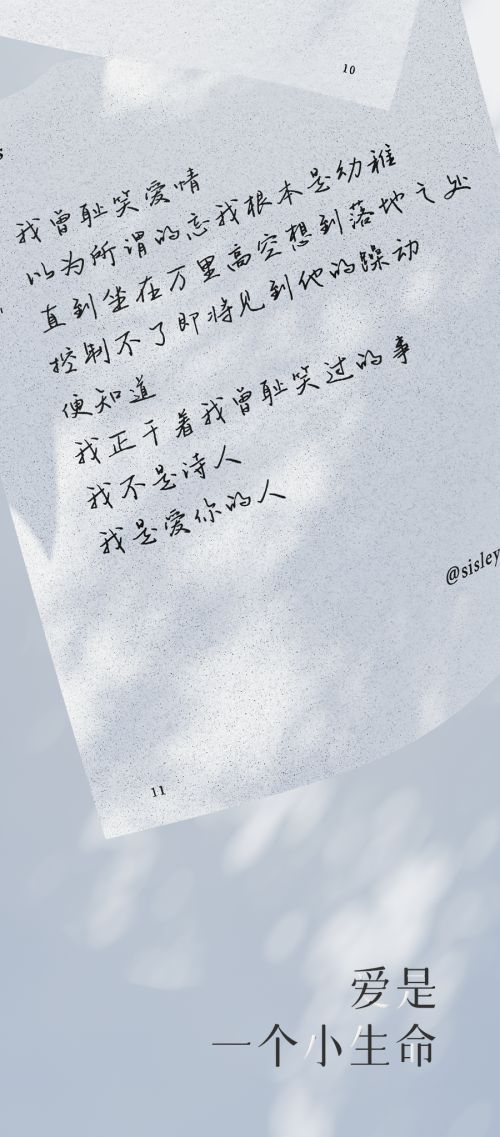 10
s
我曾耻笑爱情
以为所谓的忘我根本是幼稚
直到坐在万里高空想到落地之处
控制不了即将见到他的躁动
便知道
我正干着我曾耻笑过的事
我不是诗人
我是爱你的人
@sisley
11
爱是
一个小生命